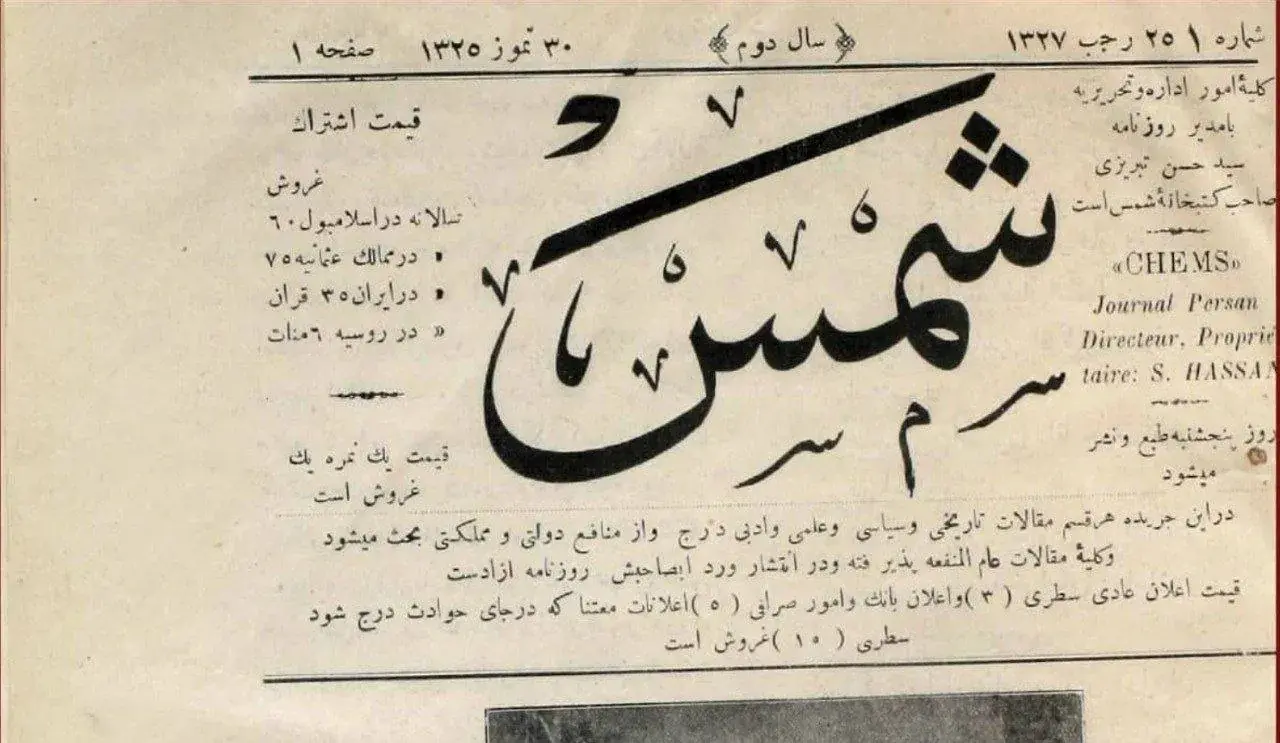 شماره ۱ ۲۵ رجب ۱۳۲۷
سال دوم
۳۰ تموز ۱۳۲۵
صفحه ۱
کلیهٔ امور اداره و تحریریه
بامدیر روزنامه
سید حسن تبریزی
صاحب کتبخانهٔ شمس است
«CHEMS»
Journal Persan
Directeur, Proprié
taire: S. HASSAN
روز پنجشنبه طبع و نشر
میشود
شمس
قیمت اشتراک
غروش
سالانه در اسلامبول ۶۰
« درممالک عثمانیه ۷۵
« درایران ۳۵ قران
« در روسیه ۶ منات
قیمت یک نمره یک
غروش است
دراین جریده هرقسم مقالات تاریخی وسیاسی وعلمی وادبی درج واز منافع دولتی و مملکتی بحث میشود
وکلیهٔ مقالات عام المنفعه پذیر فته ودر انتشار ورد ابصاحبش روزنامه ازادست
قیمت اعلان عادی سطری ( ۳ ) واعلان بانک وامور صرافی ( ۵ ) اعلانات معتنا که درجای حوادث درج شود
سطری ( ۱۵ ) غروش است